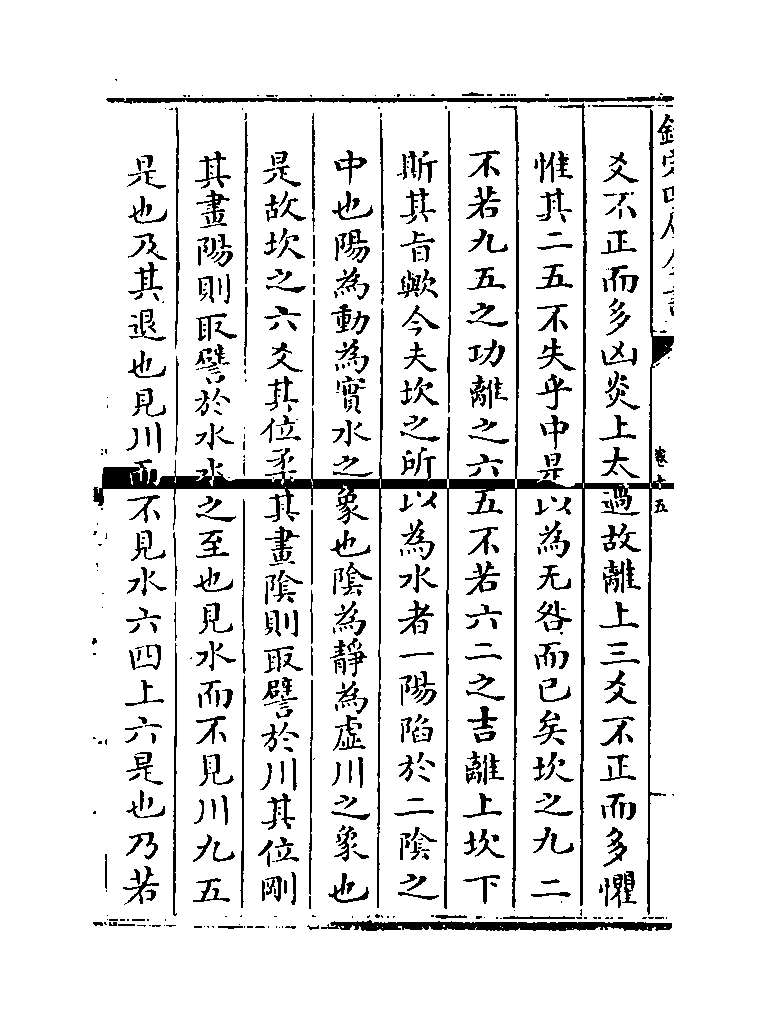 欽定四庫全書
卷十五
爻不正而多凶炎上太過故離上三爻不正而多懼
惟其二五不失乎中是以為无咎而已矣坎之九二
不若九五之功離之六五不若六二之吉離上坎下
斯其旨歟今夫坎之所以為水者一陽陷於二陰之
中也陽為動為實水之象也陰為靜為虛川之象也
是故坎之六爻其位柔其畫陰則取譬於川其位剛
其畫陽則取譬於水水之至也見水而不見川九五
是也及其退也見川而不見水六四上六是也乃若